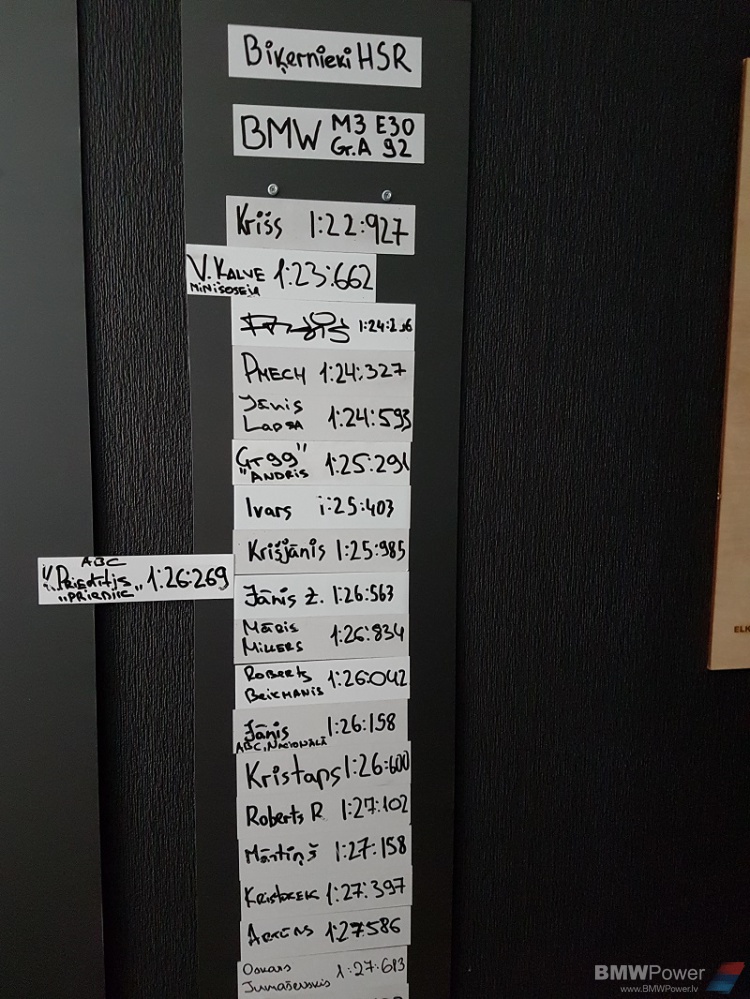 Biķernieki HSR
BMW M3 E30
Gr.A 92
Krišs 1:22:927
V. KALVE 1:23:662
MINIŠOSEJA
1:24:236
PMECH 1:24:327
Jānis
Lapsa 1:24:593
GT99"
"ANDRIS 1:25:291
Ivars 1:25:403
Krišjānis 1:25:985
ABC
1:26:269
Jānis Ž. 1:26:563
Māris
Millers 1:26:834
Roberts
Beichmanis 1:26:042
Jānis 1:26:158
ABC, NACIONĀLĀ
Kristaps 1:26:600
Roberts R 1:27:102
Mārtiņš 1:27:158
1:27:397
1:27586
Oskars
Jumaševskis 1:27:613
ELK
BMWPower
www.BMWPower.lv